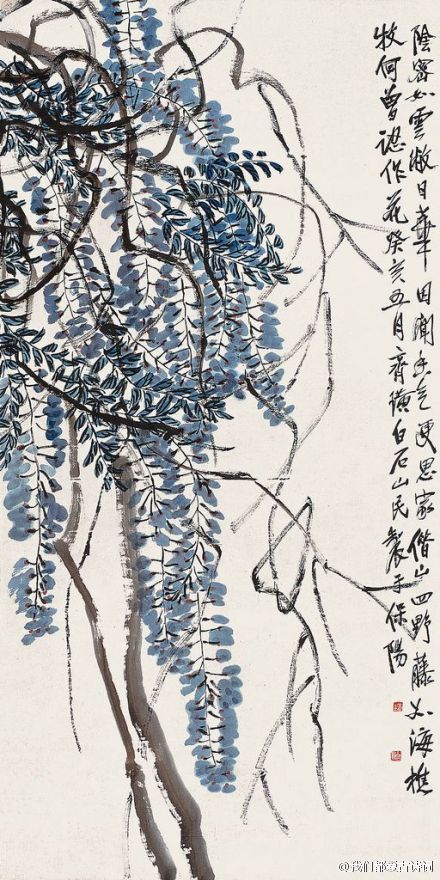 陰密如雲蔽日華因聞香气便思家借山四野藤如海樵
牧何曾認作花癸亥五月齊璜白石山民製于保陽
@我们都爱古诗词